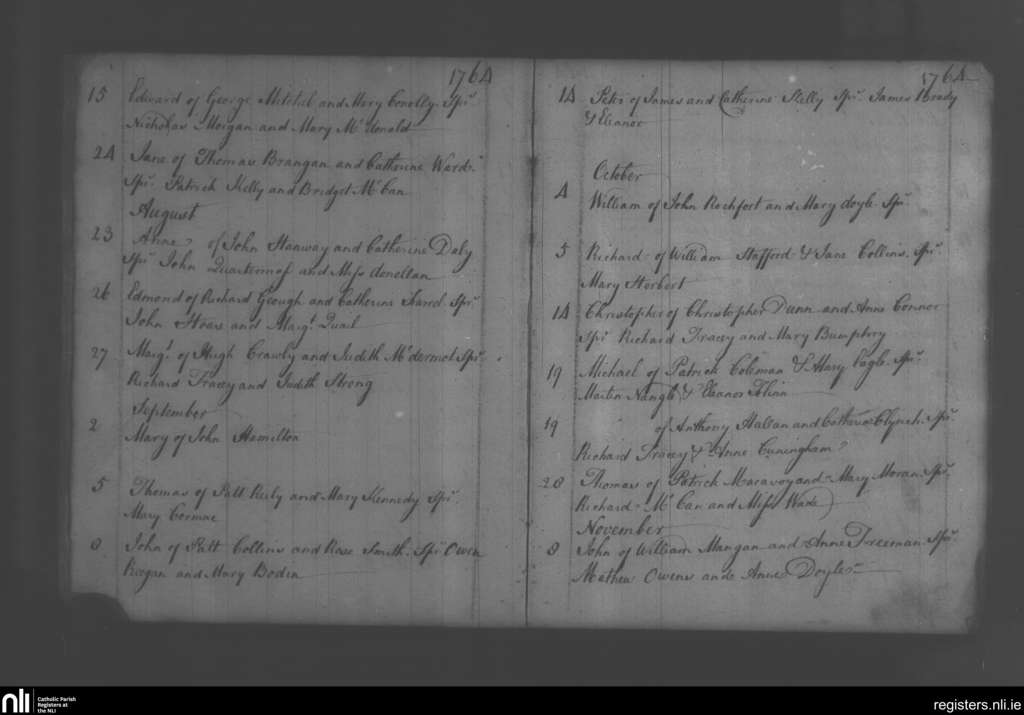 1764
15 Edward of George Mitchel and Mary Conolly Spr.
Nicholas Morgan and Mary Mc.donald
24 Jane of Thomas Brangan and Catherine Ward.
Spr. Patrick Kelly and Bridget Mc.Can
August
23 Anne of John Hanway and Catherine Daly
Spr. John and Miss
26 Edmond of Richard Geough and Catherine Farrel Spr.
John Hoare and Margt. Quail
27 Margt. of Hugh Crawly and Judith Mc.dermot Spr.
Richard Tracey and Judith Strong
September
2 Mary of John Hamilton
5 Thomas of Patt Reily and Mary Kennedy Spr.
Mary
8 John of Patt Collins and Rose Smith Spr. Owen
Keegan and Mary Boden
1764
14 Peter of James and Catherine Kelly Spr. James Brady
& Eleanor
October
4 William of John Rochfort and Mary doyle Spr.
5 Richard of William Stafford & Jane Collins. Spr.
Mary Herbert
14 Christopher of Christopher Dunn and Anne Connor
Spr. Richard Tracey and Mary Bumptry
19 Michael of Patrick Coleman & Mary Cagle Spr.
Martin Nangle & Eleanor Flinn
19 of Anthony and Catherine Clynch Spr.
Richard Tracey & Anne Cuningham
28 Thomas of Patrick and Mary Moran Spr.
Richard Mc.Can and Miss Wade
November
8 John of William Mangan and Anne Freeman Spr.
Mathew Owens and Anne Doyle
nli Catholic Parish
Registers at
the NLI
registers.nli.ie